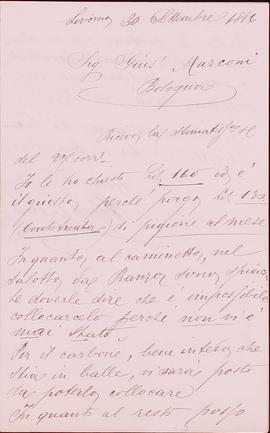 Livorno 30 Settembre 1896
Sig Gius. Marconi
Bologna
Ricevo la stimatissa
del 28 corr.
Io le ho chiesto Lit. 160 ed è
il giusto, perchè pago Lit 130
(Centotrenta) di pigione al mese
In quanto al caminetto, nel
salotto da Pranzo sono spiacen
te doverle dire che è impossibile
collocarcelo perchè non vi è
mai stato
Per il carbone, bene inteso che
stia in balle, vi sarà posto
da poterlo collocare
In quanto al resto posso